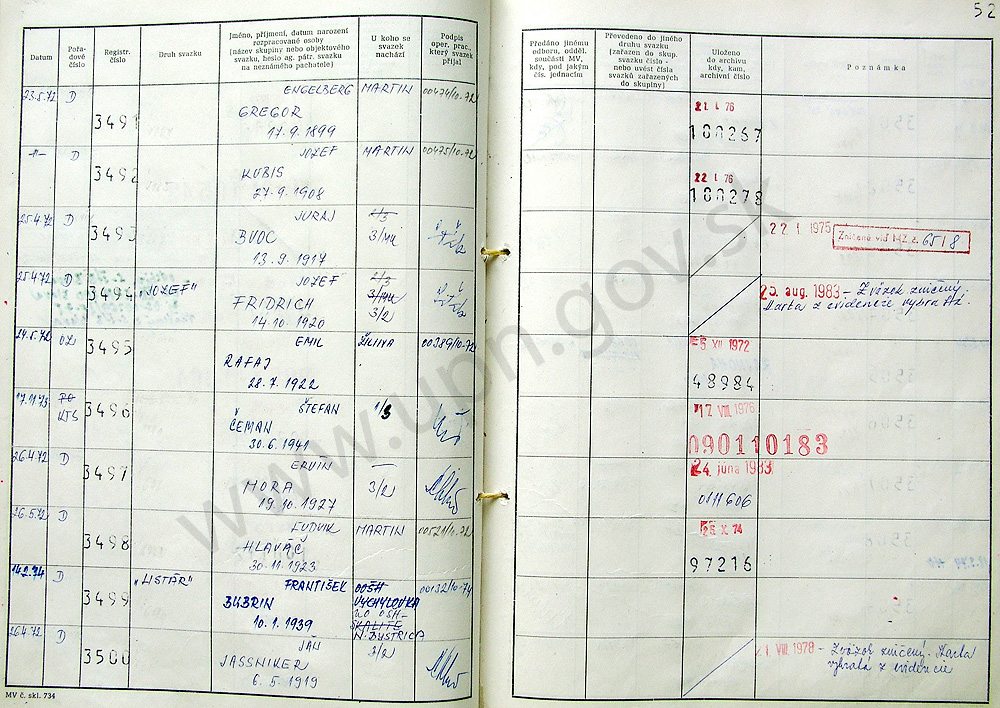 52
Datum
Pořadové číslo
Registr. číslo
Druh svazku
Jméno, příjmení, datum narození rozpracované osoby (název skupiny nebo objektového svazku, heslo ag. pátr. svazku na neznámého pachatele)
U koho se svazek nachází
Podpis oper. prac., který svazek přijal
Předáno jinému odboru, odděl. součásti MV, kdy, pod jakým čís. jednacím
Převedeno do jiného druhu svazku (zařazen do skup. svazku číslo - nebo uvést čísla svazků zařazených do skupiny)
Uloženo do archivu kdy, kam, archivní číslo
Poznámka
23.5.72 D 3491 ENGELBERG MARTIN 00474/10-72
GREGOR
17.9.1899
21. I. 76
100267
-"- D 3492 JOZEF MARTIN 00475/10-72
KUBIS
27.9.1908
22. I. 76
100278
25.4.72 D 3493 JURAJ
BVOC
13.9.1917
22. I. 1975 Zničené viď NZ č. 6518
25.4.72 D 3494 "JOZEF" JOZEF
FRIDRICH 3/2
14.10.1920
25. aug. 1983 - Zväzok zničený.
Karta z evidencie vybratá.
24.5.72 3495 EMIL ŽILINA 00389/10-72
RAFAJ
28.7.1922
5 XII 1972
48984
17.11.73 KTS 3496 ŠTEFAN 1/3
ČEMAN
30.6.1941
17. VIII. 1976
090110183
26.4.72 D 3497 ERVIN
MORA 3/2
19.10.1927
24. júna 1983
0111606
26.5.72 D 3498 ĽUDVIK MARTIN
HLAVÁČ
30.11.1923
X. 74
97216
14.2.74 D 3499 "LISTÁR" FRANTIŠEK OOŠH 00132/10-74
BUBRIN VYCHYLOVKA
10.1.1939 SKALITE
N. BYSTRICA
26.4.72 D 3500 JÁN 3/2
JASSNIKER
6.5.1919
VIII. 1978 - Zväzok zničený. Karta
vybratá z evidencie
MV č. skl. 734
www.upn.gov.sk